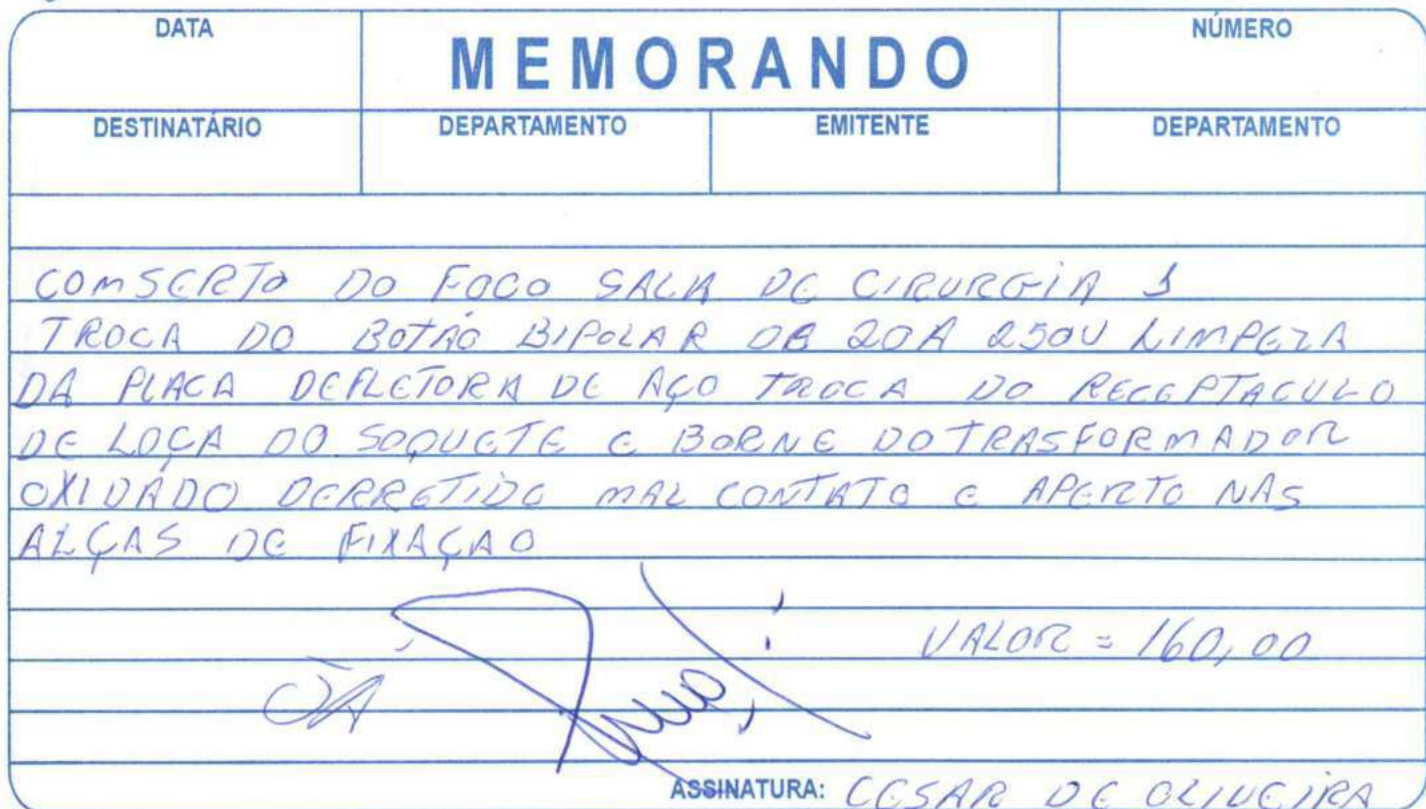 DATA
MEMORANDO
NÚMERO
DESTINATÁRIO DEPARTAMENTO EMITENTE DEPARTAMENTO
COMSERTO DO FOCO SALA DE CIRURGIA 1
TROCA DO BOTÃO BIPOLAR DE 20A 250V LIMPEZA
DA PLACA DEFLETORA DE AÇO TROCA DO RECEPTACULO
DE LOÇA DO SOQUETE E BORNE DO TRASFORMADOR
OXIDADO DERRETIDO MAL CONTATO E APERTO NAS
ALÇAS DE FIXAÇAO
VALOR = 160,00
ASSINATURA: CESAR DE OLIVEIRA